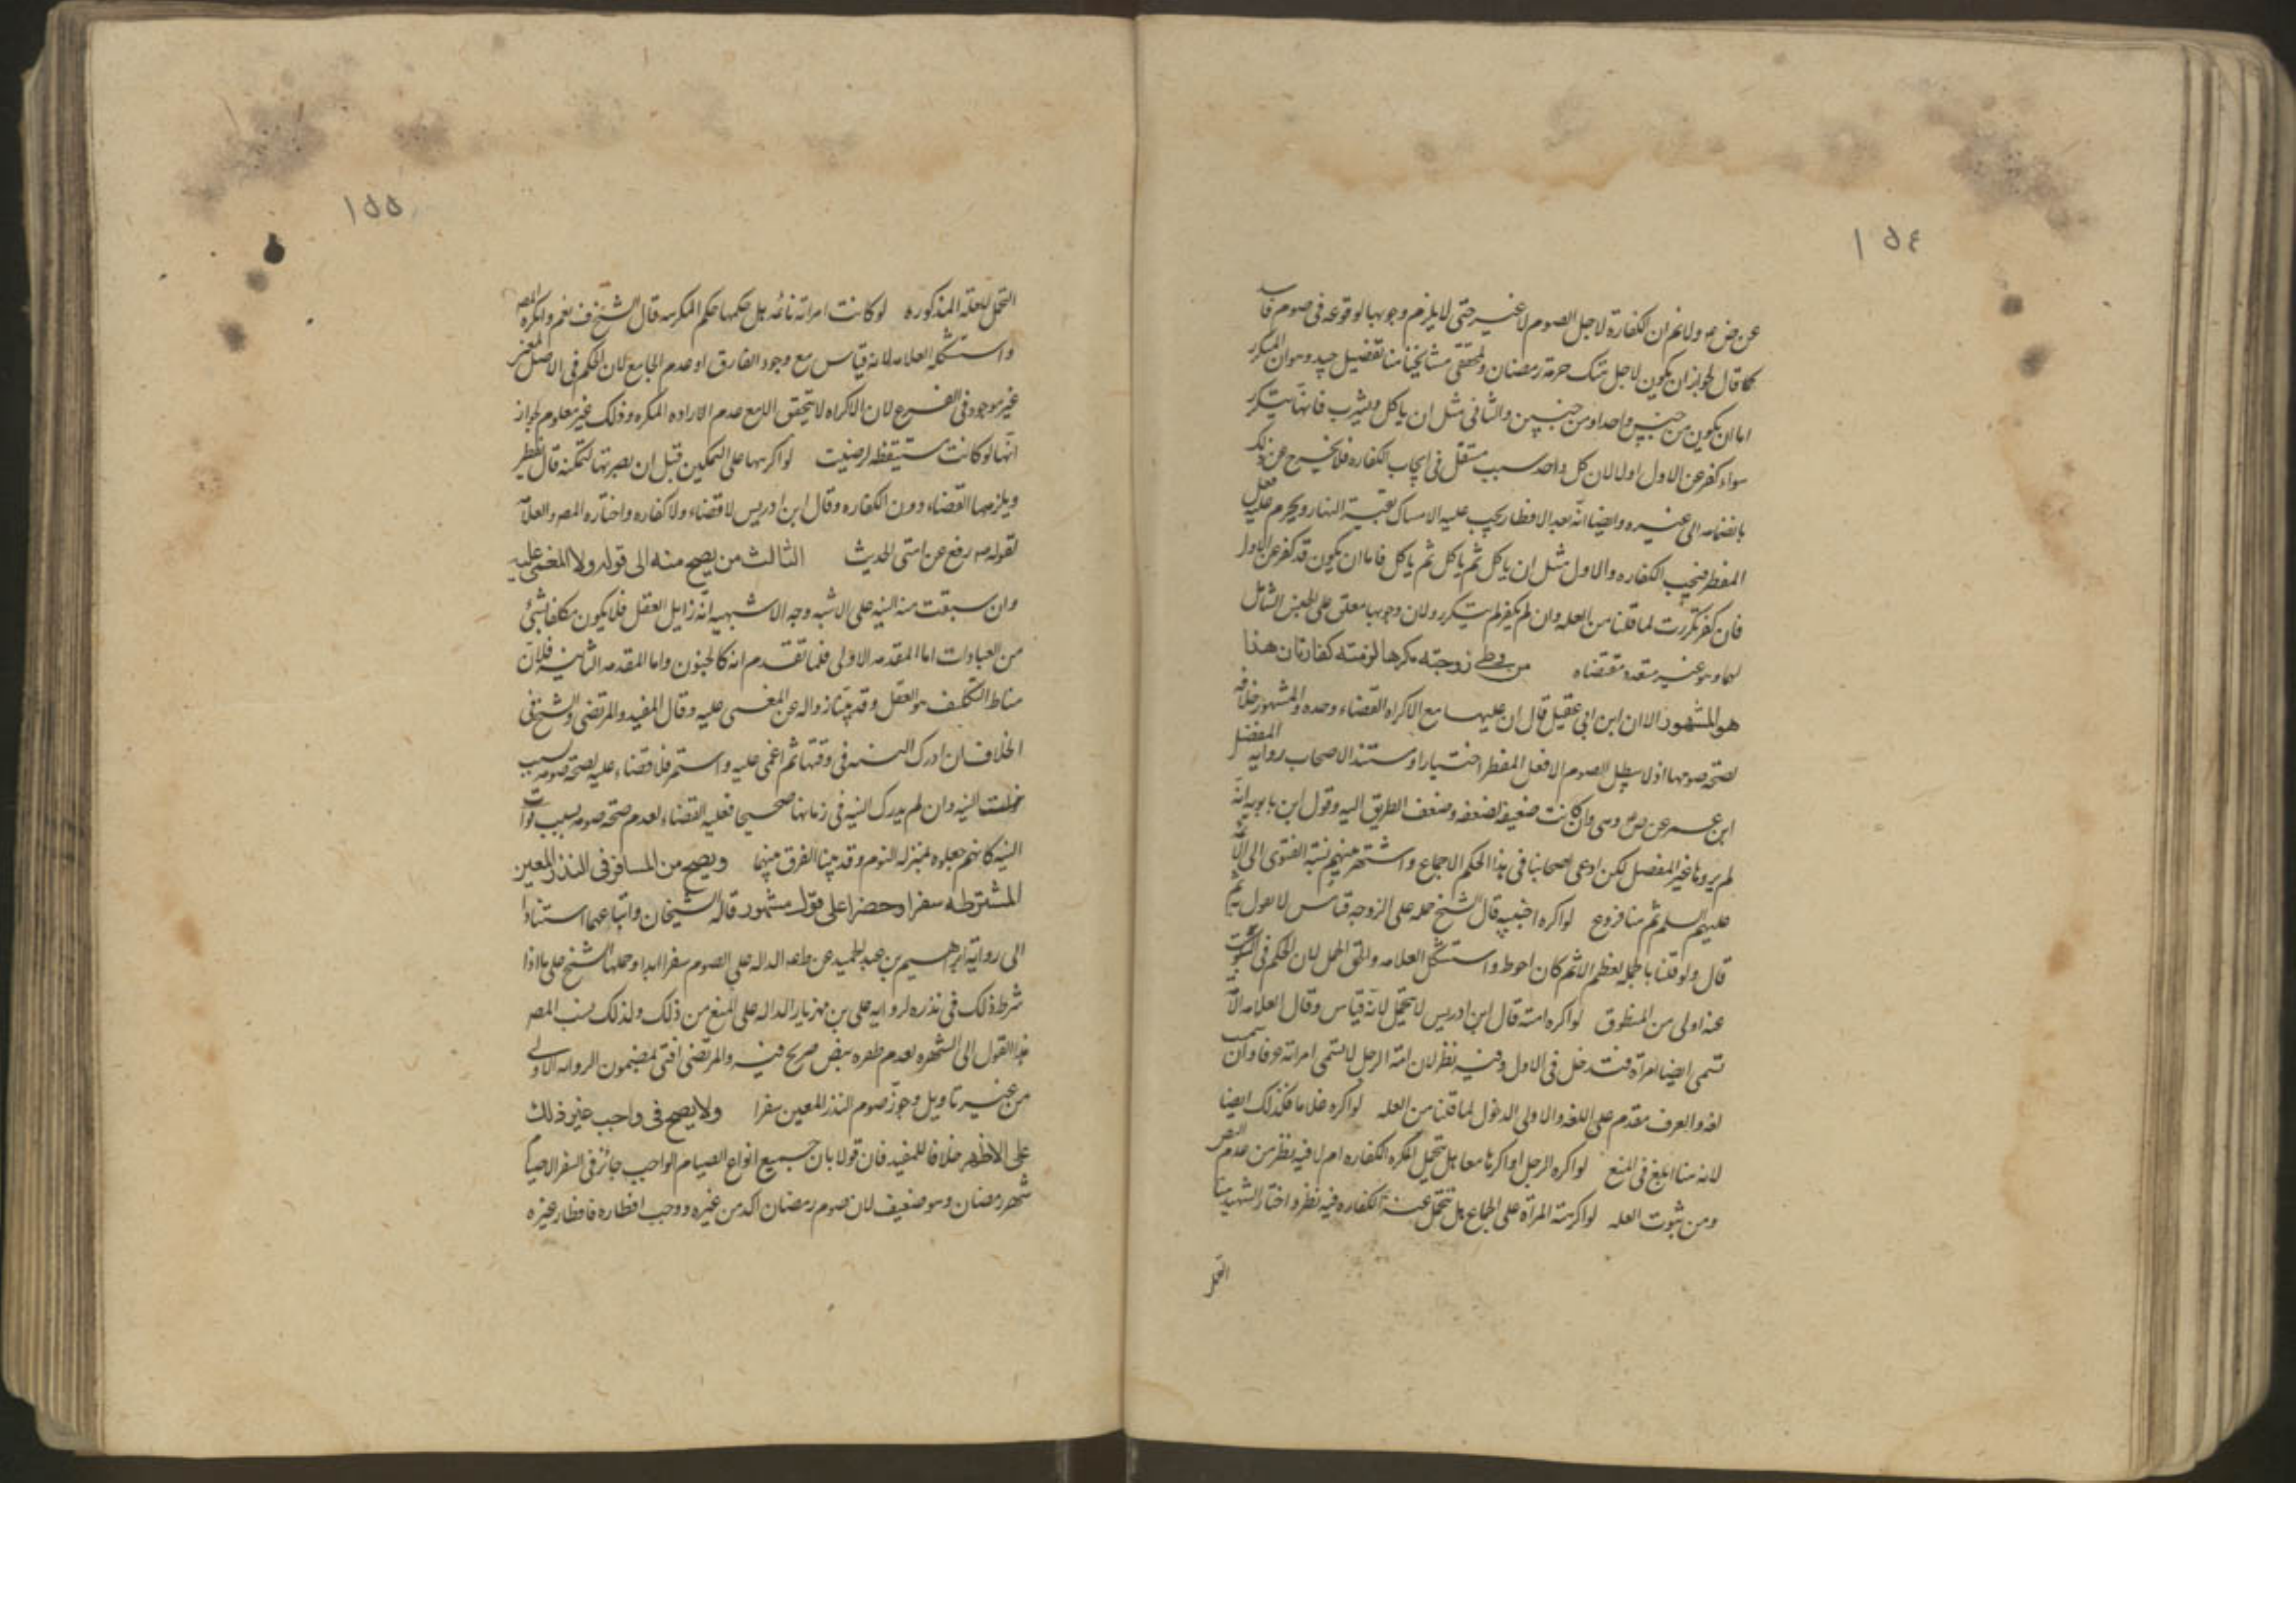 ١٥٤
عن ض م ولا نم ان الكفارة لاجل الصوم لا غير حتى لا يلزم وجوبها لوقوعه فى صوم فاسد
كما قال لجواز ان يكون لاجل هتك حرمة رمضان ولمحققى مشايخنا هنا تفصيل جيد وهو ان المتكرر
اما ان يكون من جنس واحد او من جنسين والثانى مثل ان ياكل ويشرب فانها تتكرر
سواء كفر عن الاول اولا لان كل واحد سبب مستقل فى ايجاب الكفاره فلا يخرج عن ذلك
بانضمامه الى غيره وايضا انه بعد الافطار يجب عليه الامساك بقية النهار ويحرم عليه فعل
المفطر فتجب الكفاره والاول مثل ان ياكل ثم ياكل ثم ياكل فاما ان يكون قد كفر عن الاول
فان كفر تكررت لما قلنا من العله وان لم يكفر لم يتكرر ولان وجوبها معلق على الجنس الشامل
لهما وهو غير متعدد مقتضاه من وطى زوجته مكرها لزمته كفارتان هذا
هو المشهور الا ان ابن ابى عقيل قال ان عليها مع الاكراه القضاء وحده والمشهور خلافه
لصحة صومها اذ لا يبطل الصوم الا فعل المفطر اختيارا ومستند الاصحاب رواية المفضل
ابن عمر عن ص وهى وان كانت ضعيفة لضعفه وضعف الطريق اليه وقول ابن بابويه انه
لم يروها غير المفضل لكن ادعى اصحابنا فى هذا الحكم الاجماع واشتهر بينهم نسبة الفتوى الى الائمة
عليهم السلم ثم هنا فروع لو اكره اجنبية قال الشيخ حمله على الزوجه قياس لا نقول به ثم
قال ولو قلنا بالحمل لعظم الاثم كان احوط واستشكل العلامه والحق الحمل لان الحكم فى المسكوت
عنه اولى من المنطوق لو اكره امته قال ابن ادريس لا يتحمل لانه قياس وقال العلامه الامة
تسمى ايضا امراة فتدخل فى الاول وفيه نظر لان امة الرجل لا تسمى امراته عرفا وان سميت
لغة والعرف مقدم على اللغة والاولى الدخول لما قلنا من العله لو اكره غلاما فكذلك ايضا
لانه هنا ابلغ فى المنع لو اكره الرجل او اكرها معا هل يتحمل المكره الكفاره ام لا فيه نظر من عدم النص
ومن ثبوت العله لو اكرهته المرأة على الجماع هل تتحمل عنه الكفاره فيه نظر واختار الشهيد هنا
التحمل
١٥٥
التحمل للعلة المذكوره لو كانت امراته نائمه هل حكمها حكم المكرهه قال الشيخ ف نعم وانكره المصر
واستشكله العلامه لانه قياس مع وجود الفارق او عدم الجامع لان الحكم فى الاصل المعنى
غير موجود فى الفرع لان الاكراه لا يتحقق الا مع عدم الاراده المكره وذلك غير معلوم لجواز
انها لو كانت مستيقظه لرضيت لو اكرهها على التمكين قبل ان يصير تها لتمكنه قال تفطر
ويلزمها القضاء دون الكفاره وقال ابن ادريس لا قضاء ولا كفاره واختاره المصر والعلامة
لقوله ص رفع عن امتى الحديث الثالث من يصح منه الى قوله ولا المغمى عليه
وان سبقت منه النيه على الاشبه وجه الاشبهيه انه زايل العقل فلا يكون مكلفا بشئ
من العبادات اما المقدمه الاولى فلما تقدم انه كالجنون واما المقدمه الثانيه فلان
مناط التكليف هو العقل وقد بينا زواله عن المغمى عليه وقال المفيد والمرتضى والشيخ فى
الخلاف ان ادرك النيه فى وقتها ثم اغمى عليه واستمر فلا قضاء عليه لصحة صومه بسبب
خلفت النيه وان لم يدرك النيه فى زمانها صحيحا فعليه القضاء لعدم صحة صومه بسبب فوات
النيه كانهم جعلوه بمنزلة النوم وقد بينا الفرق بينهما ويصح من المسافر فى النذر المعين
المشترطه سفرا وحضرا على قول مشهور قاله الشيخان واتباعهما استنادا
الى رواية ابراهيم بن عبد الحميد عن الداله على الصوم سفرا ابدا وحملها الشيخ على ما اذا
شرط ذلك فى نذره لروايه على بن مهزيار الداله على المنع من ذلك ولذلك نسب المصر
هذا القول الى الشهره لعدم ظفره بنص صريح فيه والمرتضى افتى بمضمون الروايه الاولى
من غير تاويل وجوز صوم النذر المعين سفرا ولا يصح فى واجب غير ذلك
على الاظهر خلافا للمفيد فان قولا بان جميع انواع الصيام الواجب جائز فى السفر الا صيام
شهر رمضان وهو ضعيف لان صوم رمضان اكد من غيره ووجب افطاره فافطار غيره